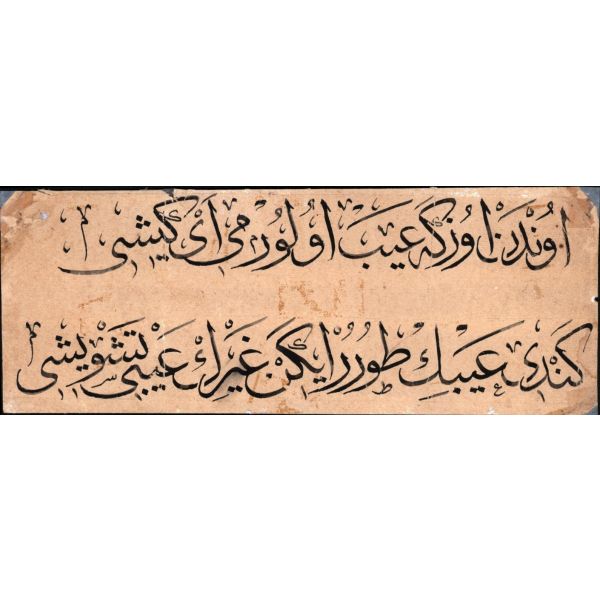 اوندن اوزگه عيب اولورمى اى كيشى
كندى عيبك طورر ايكن غيرك عيبى تشويشى